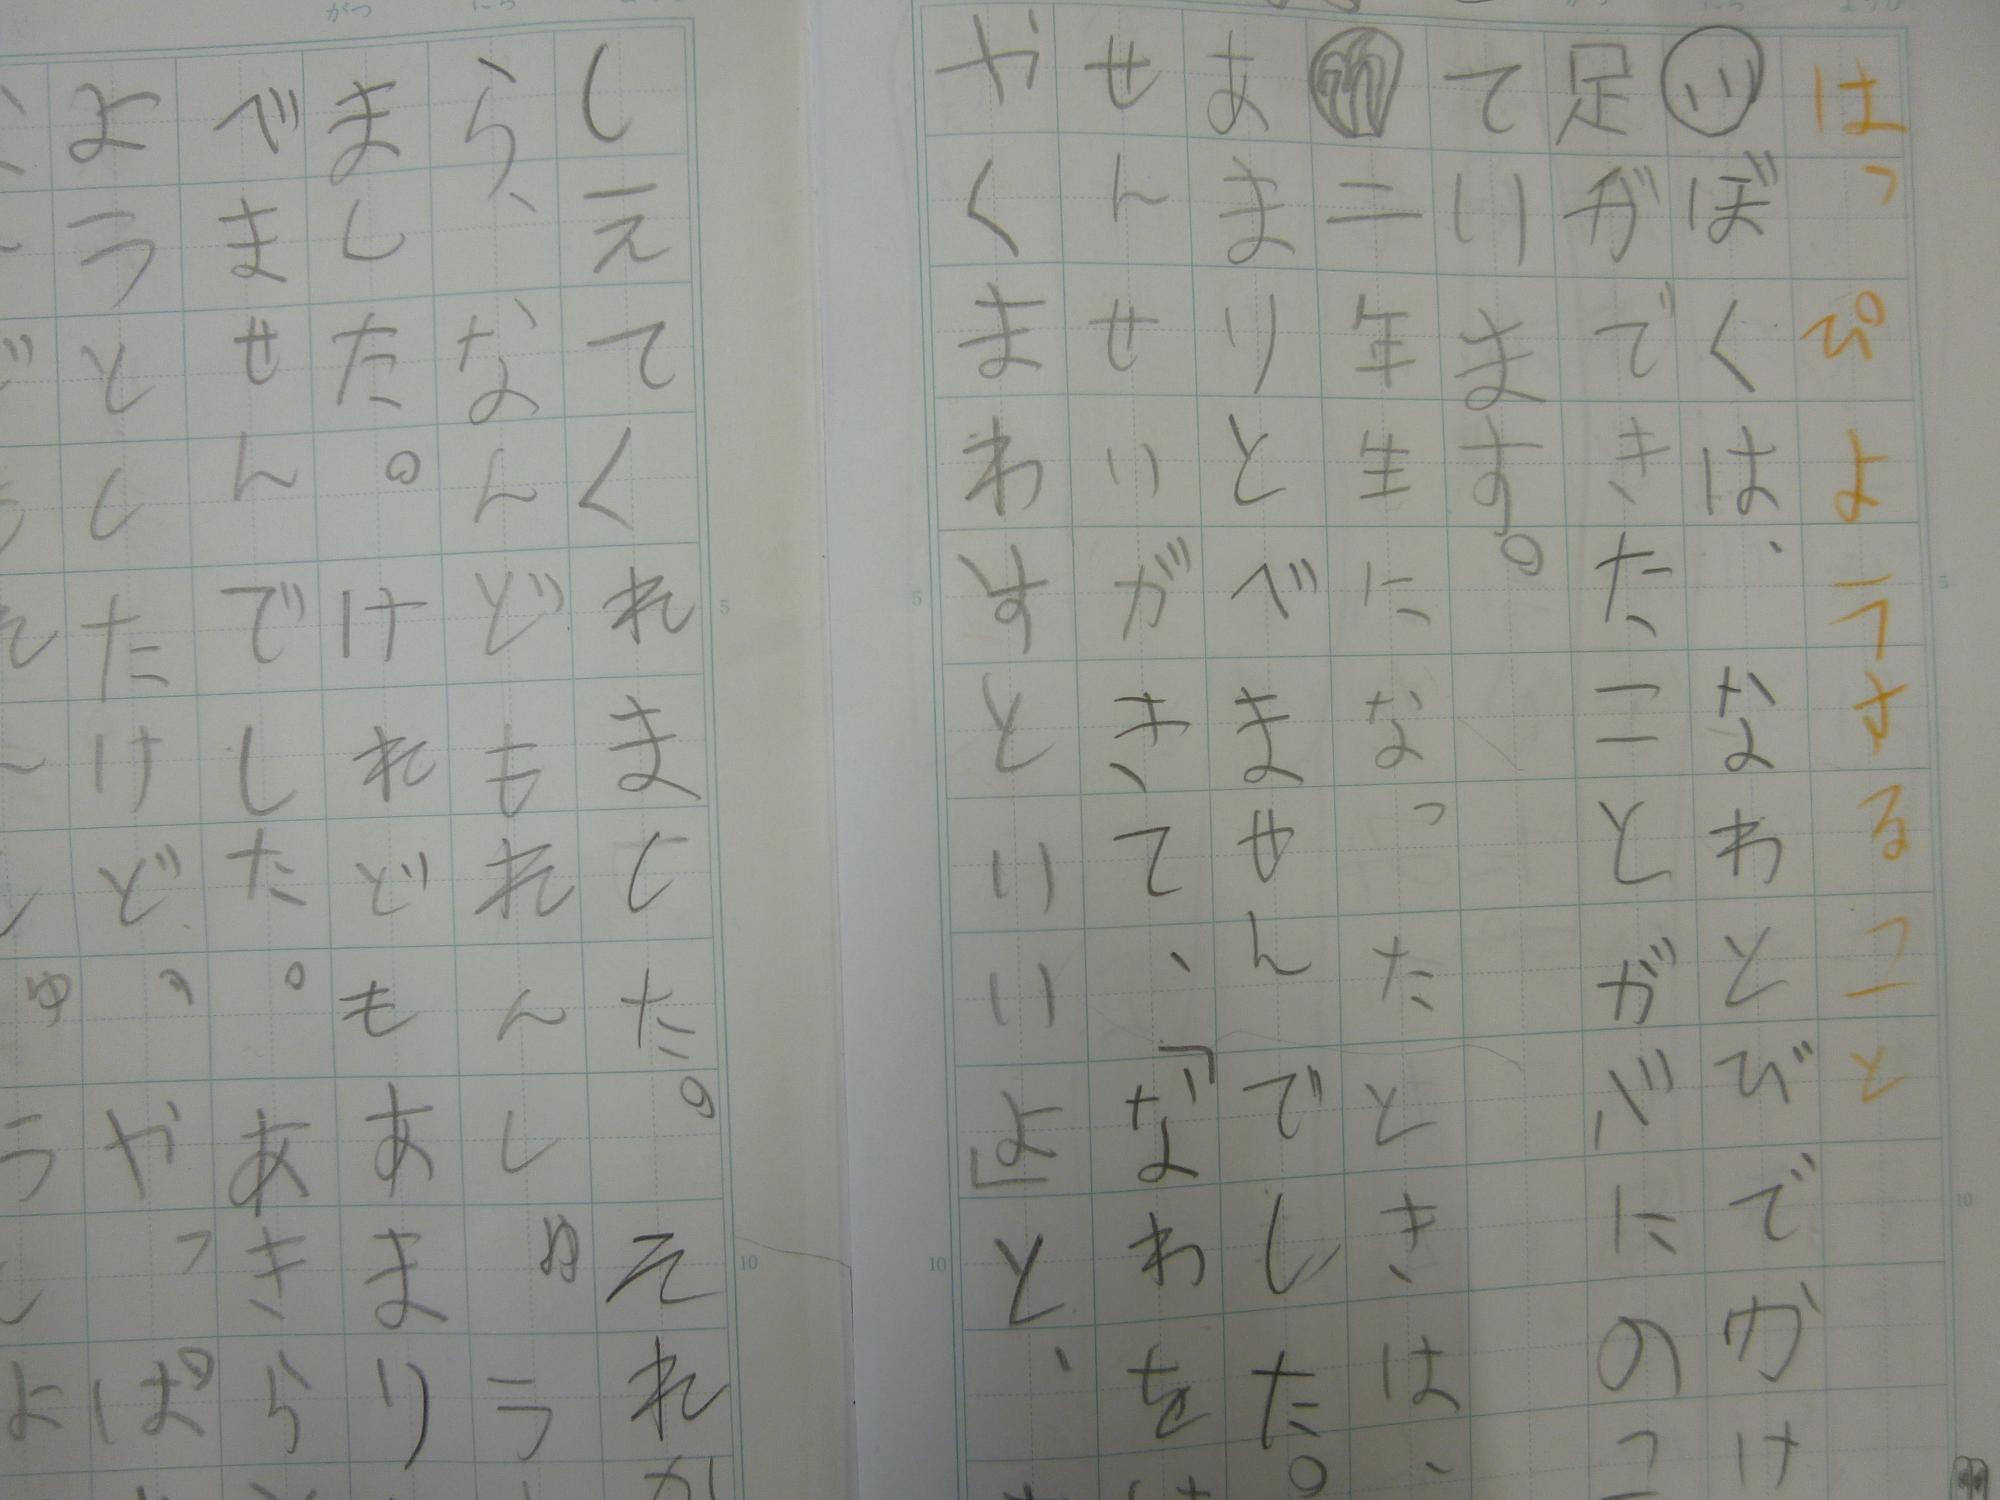 はっぴょうすること
いぼくは、なわとびでかけ
足ができたことが心にのこっ
ています。
二年生になったときは、
あまりとべませんでした。
せんせいがきて、「なわを
やくまわすといいよ」と、
しえてくれました。それか
ら、なんどもれんしゅう
ました。けれどもあまり
べませんでした。あきら
ようとしたけど、やっぱ